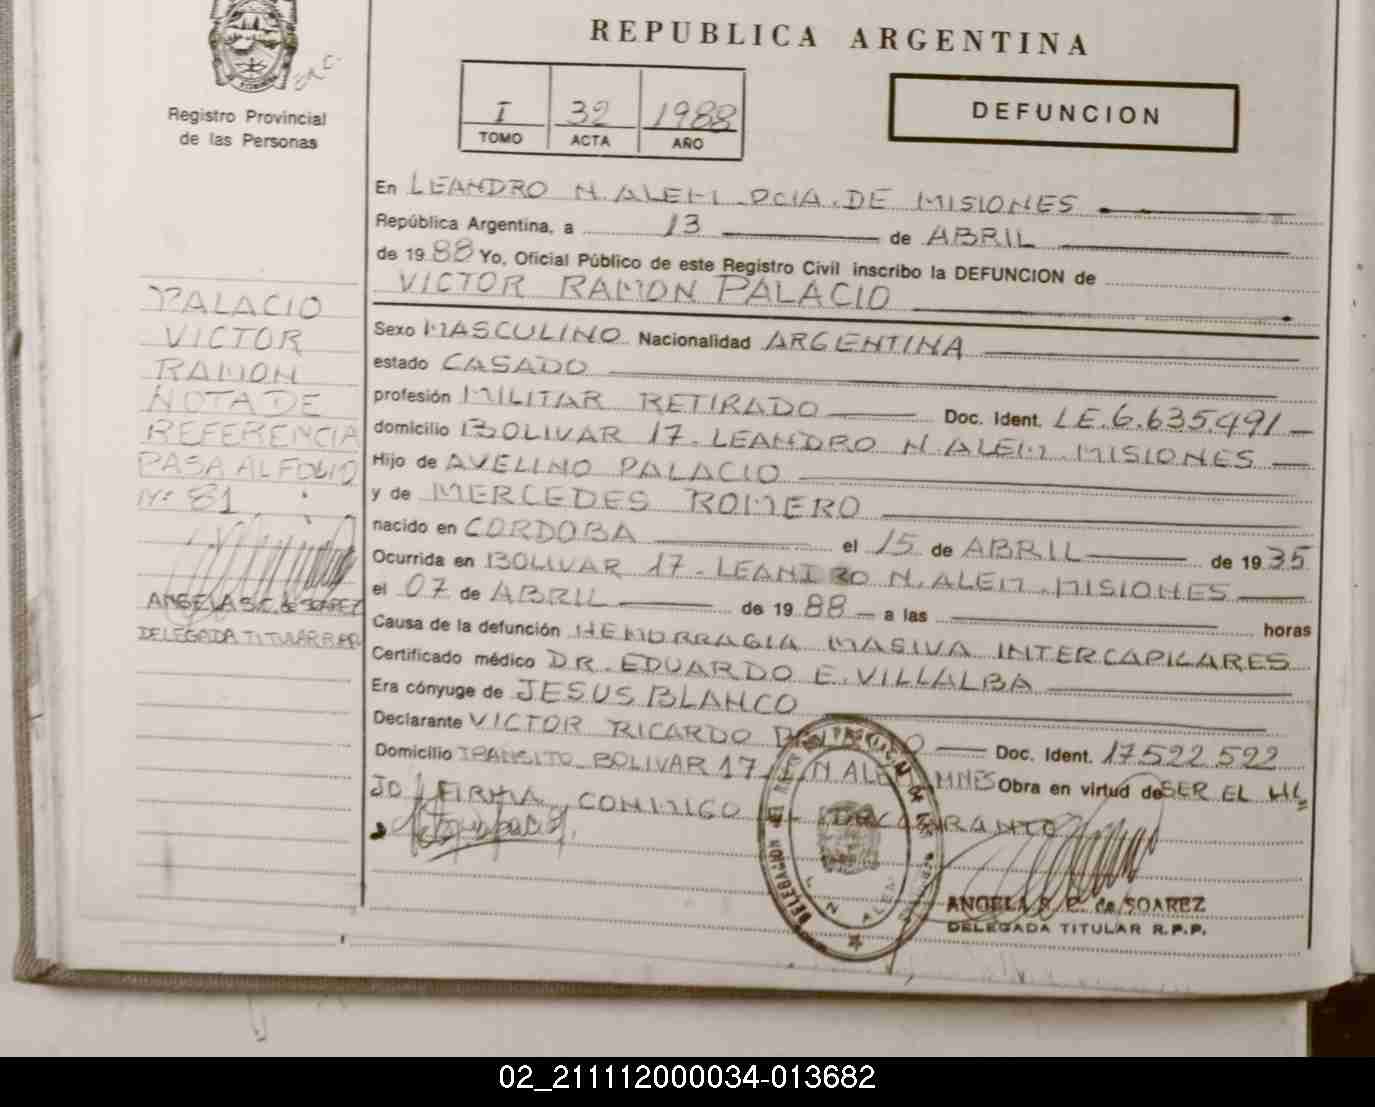 REPUBLICA ARGENTINA
Registro Provincial
de las Personas
I 32 1988
TOMO ACTA AÑO
DEFUNCION
En LEANDRO N. ALEM PCIA. DE MISIONES
República Argentina, a 13 de ABRIL
de 1988 Yo, Oficial Público de este Registro Civil inscribo la DEFUNCION de
VICTOR RAMON PALACIO
PALACIO
VICTOR
RAMON
NOTA DE
REFERENCIA
PASA AL FOLIO
Nº 81
ANGELA S.C. de SOAREZ
DELEGADA TITULAR R.P.P.
Sexo MASCULINO Nacionalidad ARGENTINA
estado CASADO
profesión MILITAR RETIRADO Doc. Ident. L.E. 6.635.491
domicilio BOLIVAR 17 - LEANDRO N. ALEM - MISIONES
Hijo de AVELINO PALACIO
y de MERCEDES ROMERO
nacido en CORDOBA el 15 de ABRIL de 1935
Ocurrida en BOLIVAR 17 - LEANDRO N. ALEM - MISIONES
el 07 de ABRIL de 1988 a las horas
Causa de la defunción HEMORRAGIA MASIVA INTERCAPILARES
Certificado médico DR. EDUARDO E. VILLALBA
Era cónyuge de JESUS BLANCO
Declarante VICTOR RICARDO Doc. Ident. 17.522.522
Domicilio TRANSITO BOLIVAR 17 N ALEM MNES Obra en virtud de SER EL HI
JO FIRMA CONMIGO EL DECLARANTE
DELEGACION
L. N. ALEM
ANGELA S. C. de SOAREZ
DELEGADA TITULAR R.P.P.
02_211112000034-013682